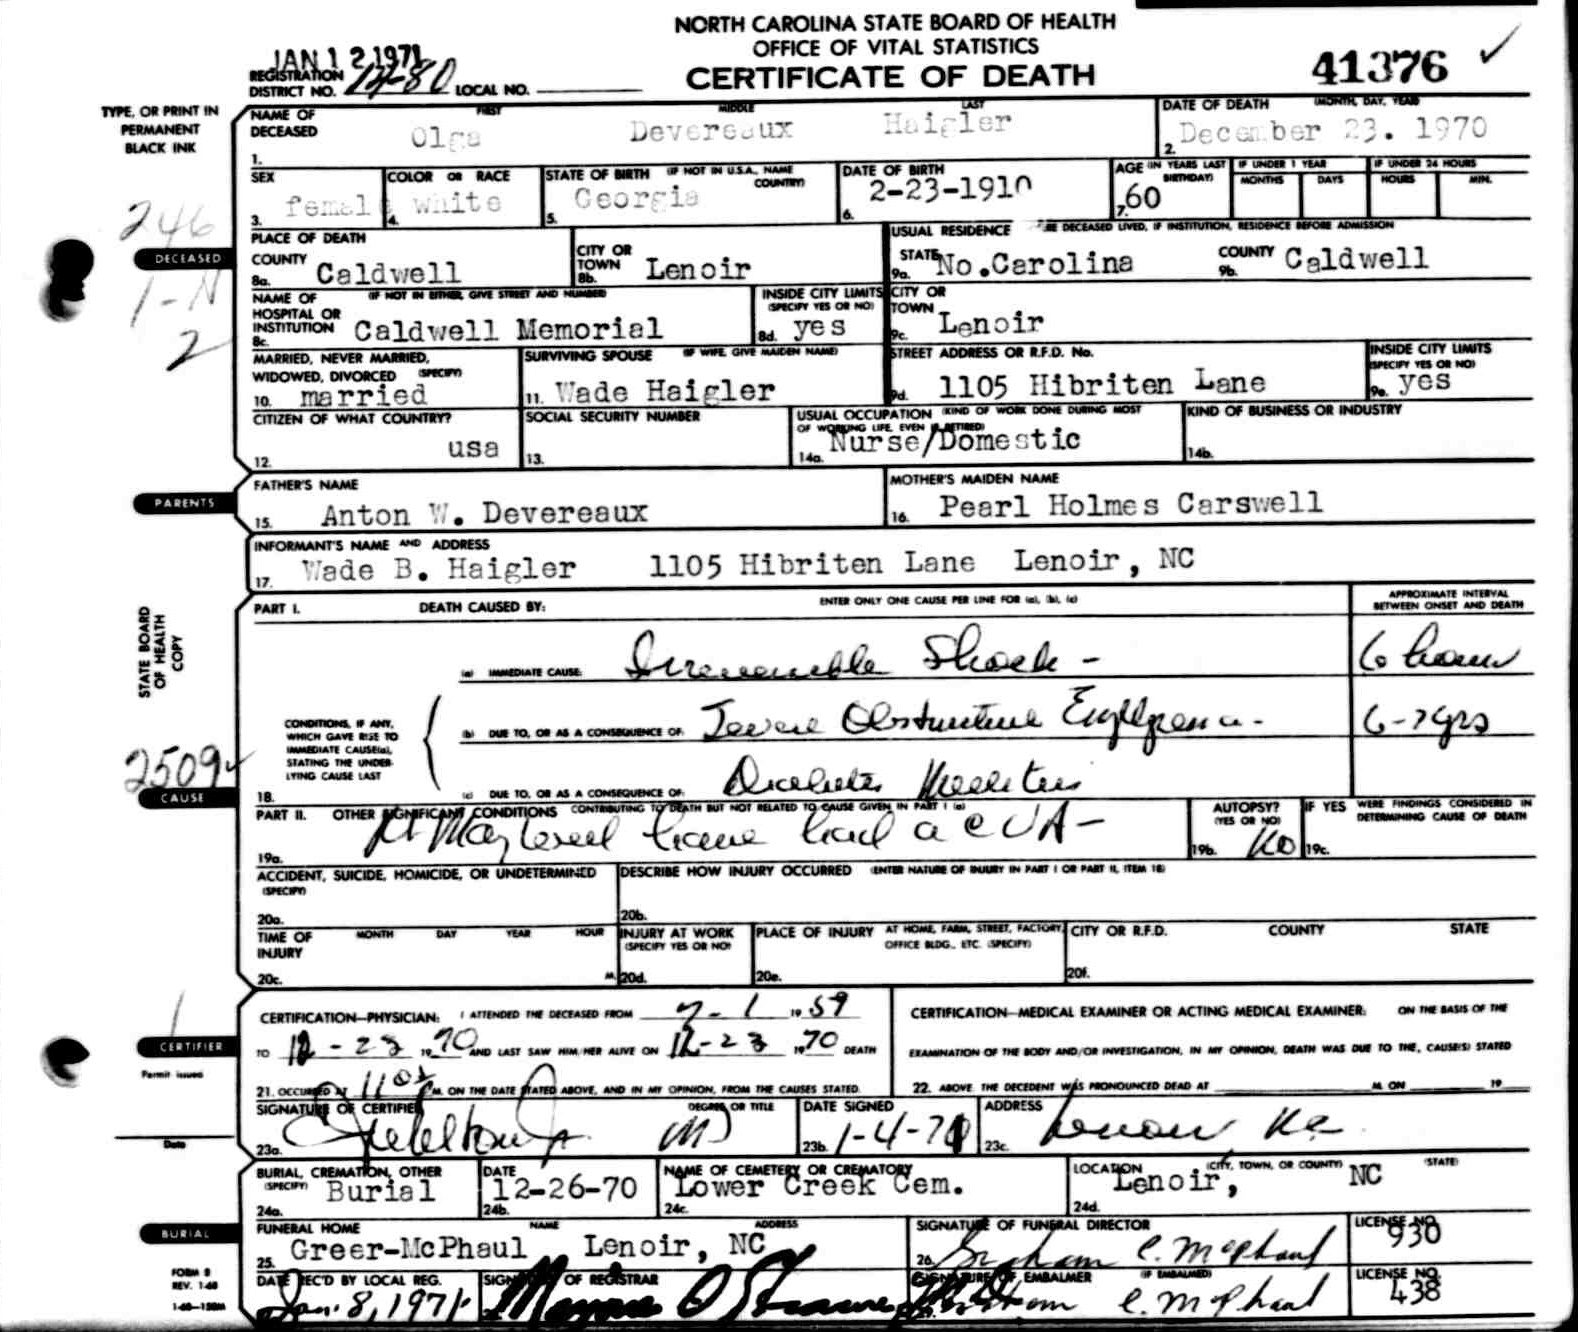 NORTH CAROLINA STATE BOARD OF HEALTH
OFFICE OF VITAL STATISTICS
CERTIFICATE OF DEATH
41376 ✓
JAN 12 1971
REGISTRATION DISTRICT NO. LOCAL NO.
TYPE, OR PRINT IN PERMANENT BLACK INK
NAME OF DECEASED FIRST MIDDLE LAST
1. Olga Devereaux Haigler
DATE OF DEATH (MONTH, DAY, YEAR)
2. December 23. 1970
SEX
3. female
COLOR OR RACE
4. white
STATE OF BIRTH (IF NOT IN U.S.A., NAME COUNTRY)
5. Georgia
DATE OF BIRTH
6. 2-23-1910
AGE (IN YEARS LAST BIRTHDAY)
7. 60
IF UNDER 1 YEAR MONTHS DAYS
IF UNDER 24 HOURS HOURS MIN.
246
DECEASED
1-N
2
PLACE OF DEATH
COUNTY
8a. Caldwell
CITY OR TOWN
8b. Lenoir
USUAL RESIDENCE DECEASED LIVED, IF INSTITUTION, RESIDENCE BEFORE ADMISSION
STATE
9a. No.Carolina
COUNTY
9b. Caldwell
NAME OF HOSPITAL OR INSTITUTION (IF NOT IN EITHER, GIVE STREET AND NUMBER)
8c. Caldwell Memorial
INSIDE CITY LIMITS (SPECIFY YES OR NO)
8d. yes
CITY OR TOWN
9c. Lenoir
MARRIED, NEVER MARRIED, WIDOWED, DIVORCED (SPECIFY)
10. married
SURVIVING SPOUSE (IF WIFE, GIVE MAIDEN NAME)
11. Wade Haigler
STREET ADDRESS OR R.F.D. No.
9d. 1105 Hibriten Lane
INSIDE CITY LIMITS (SPECIFY YES OR NO)
9e. yes
CITIZEN OF WHAT COUNTRY?
12. usa
SOCIAL SECURITY NUMBER
13.
USUAL OCCUPATION (KIND OF WORK DONE DURING MOST OF WORKING LIFE, EVEN IF RETIRED)
14a. Nurse/Domestic
KIND OF BUSINESS OR INDUSTRY
14b.
PARENTS
FATHER'S NAME
15. Anton W. Devereaux
MOTHER'S MAIDEN NAME
16. Pearl Holmes Carswell
INFORMANT'S NAME AND ADDRESS
17. Wade B. Haigler 1105 Hibriten Lane Lenoir, NC
STATE BOARD OF HEALTH COPY
PART I. DEATH CAUSED BY: ENTER ONLY ONE CAUSE PER LINE FOR (a), (b), (c)
APPROXIMATE INTERVAL BETWEEN ONSET AND DEATH
(a) IMMEDIATE CAUSE: Irreversible Shock - 6 hours
CONDITIONS, IF ANY, WHICH GAVE RISE TO IMMEDIATE CAUSE(a), STATING THE UNDERLYING CAUSE LAST
(b) DUE TO, OR AS A CONSEQUENCE OF: Severe Obstructive Emphysema - 6-7 yrs
(c) DUE TO, OR AS A CONSEQUENCE OF: Diabetes Mellitus
18.
2509 ✓
CAUSE
PART II. OTHER SIGNIFICANT CONDITIONS CONTRIBUTING TO DEATH BUT NOT RELATED TO CAUSE GIVEN IN PART I (a)
19a. Pt May have had a CVA -
AUTOPSY? (YES OR NO)
19b. No
IF YES WERE FINDINGS CONSIDERED IN DETERMINING CAUSE OF DEATH
19c.
ACCIDENT, SUICIDE, HOMICIDE, OR UNDETERMINED (SPECIFY)
20a.
DESCRIBE HOW INJURY OCCURRED (ENTER NATURE OF INJURY IN PART I OR PART II, ITEM 18)
20b.
TIME OF INJURY MONTH DAY YEAR HOUR
20c. M.
INJURY AT WORK (SPECIFY YES OR NO)
20d.
PLACE OF INJURY AT HOME, FARM, STREET, FACTORY, OFFICE BLDG., ETC. (SPECIFY)
20e.
CITY OR R.F.D. COUNTY STATE
20f.
CERTIFIER
Permit issued
Date
CERTIFICATION—PHYSICIAN: I ATTENDED THE DECEASED FROM 7-1 19 59
TO 12-23 19 70 AND LAST SAW HIM/HER ALIVE ON 12-23 1970 DEATH
21. OCCURRED AT M. ON THE DATE STATED ABOVE, AND IN MY OPINION, FROM THE CAUSES STATED.
CERTIFICATION—MEDICAL EXAMINER OR ACTING MEDICAL EXAMINER: ON THE BASIS OF THE
EXAMINATION OF THE BODY AND/OR INVESTIGATION, IN MY OPINION, DEATH WAS DUE TO THE, CAUSE(S) STATED
22. ABOVE. THE DECEDENT WAS PRONOUNCED DEAD AT M. ON 19
SIGNATURE OF CERTIFIER DEGREE OR TITLE
23a. MD
DATE SIGNED
23b. 1-4-71
ADDRESS
23c. Lenoir NC
BURIAL
BURIAL, CREMATION, OTHER (SPECIFY)
24a. Burial
DATE
24b. 12-26-70
NAME OF CEMETERY OR CREMATORY
24c. Lower Creek Cem.
LOCATION (CITY, TOWN, OR COUNTY) (STATE)
24d. Lenoir, NC
FUNERAL HOME NAME ADDRESS
25. Greer-McPhaul Lenoir, NC
SIGNATURE OF FUNERAL DIRECTOR
26. Graham C. McPhaul
LICENSE NO.
930
FORM 8
REV. 1-68
DATE REC'D BY LOCAL REG.
Jan. 8, 1971
SIGNATURE OF REGISTRAR
SIGNATURE OF EMBALMER (IF EMBALMED)
Graham C. McPhaul
LICENSE NO.
438